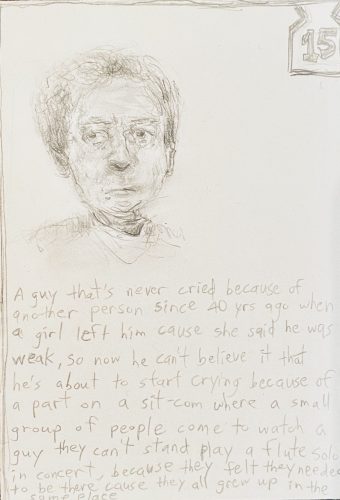 15
A guy that's never cried because of
another person since 40 yrs ago when
a girl left him cause she said he was
weak, so now he can't believe it that
he's about to start crying because of
a part on a sit-com where a small
group of people come to watch a
guy they can't stand play a flute solo
in concert, because they felt they needed
to be there cause they all grew up in the
same place